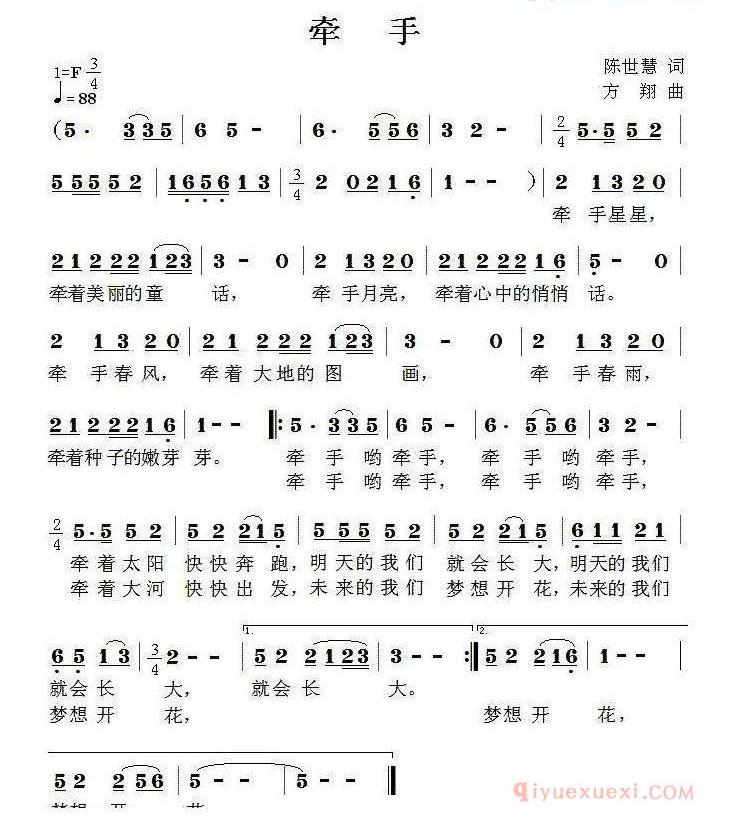 牵 手
1=F 3/4
陈世慧 词
♩=88
方 翔 曲
(5· 335 | 6 5 - | 6· 556 | 3 2 - | 2/4 5·5 5 2 |
5555 5 2 | 1656 1 3 | 3/4 2 0216 | 1 - - ) | 2 13 20 |
牵 手星星，
21 222 123 | 3 - 0 | 2 13 20 | 21 222 2 16 | 5 - 0 |
牵着美丽的童 话， 牵 手月亮， 牵着心中的悄悄 话。
2 13 20 | 21 222 123 | 3 - 0 | 2 13 20 |
牵 手春风， 牵着大地的图 画， 牵 手春雨，
21 222 16 | 1 - - ‖: 5· 335 | 6 5 - | 5· 556 | 3 2 - |
牵着种子的嫩芽 芽。 牵 手哟牵手， 牵 手哟牵手，
牵 手哟牵手， 牵 手哟牵手，
2/4 5·5 5 2 | 5 2 215 | 555 5 2 | 5 2 215 | 611 21 |
牵着太阳 快快奔跑，明天的我们 就会长大，明天的我们
牵着大河 快快出发，未来的我们 梦想开花，未来的我们
65 13 | 3/4 2 - - | 1. 52 21 123 | 3 - - :‖ 2. 52 216 | 1 - - |
就会长 大， 就会长 大。
梦想开 花， 梦想开 花，
52 256 | 5 - - | 5 - - ‖
qiyuexuexi.com